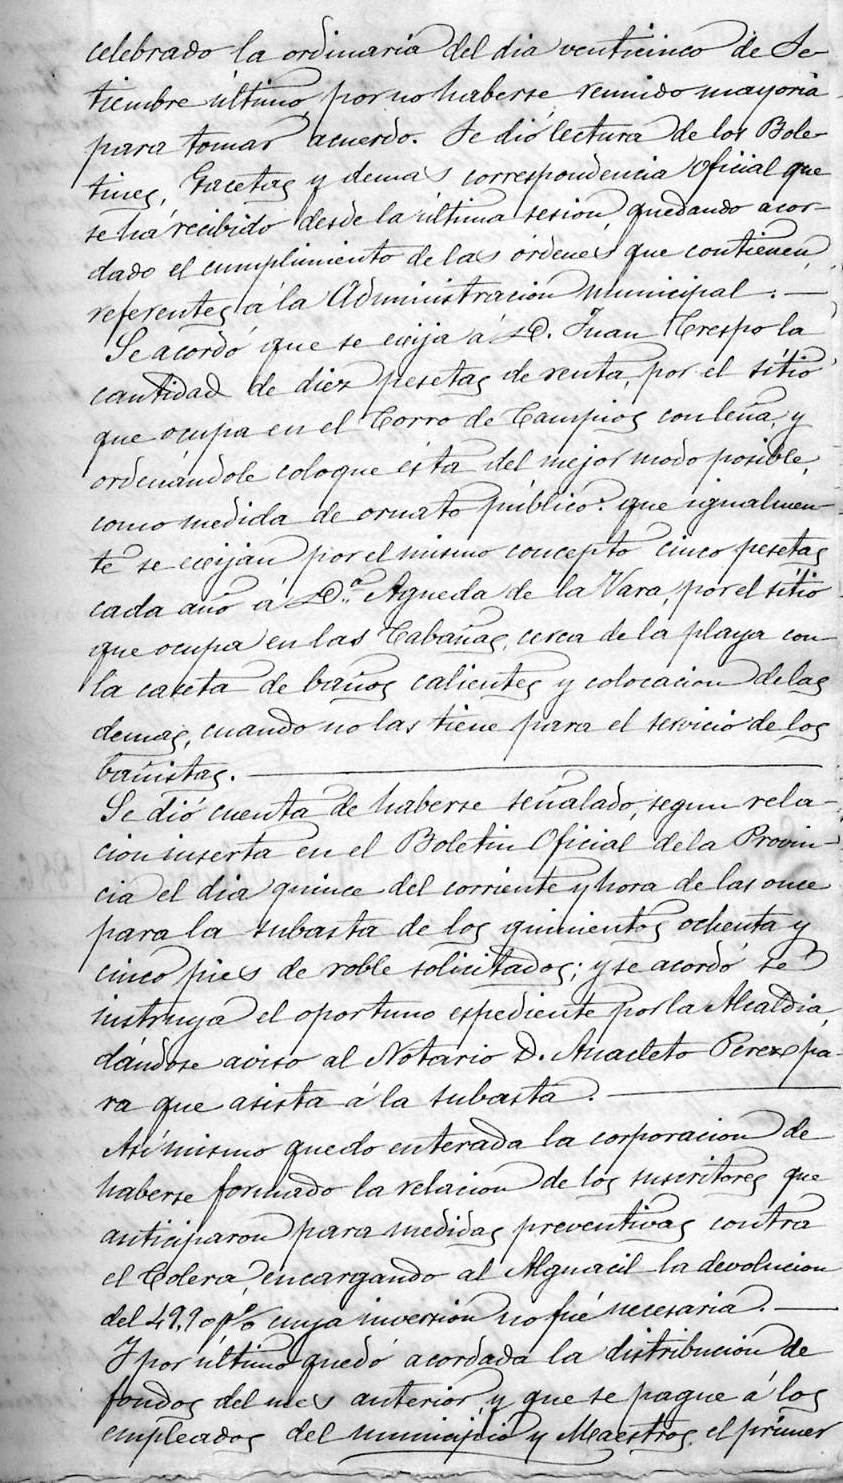 celebrado la ordinaria del dia venticinco de Se-
tiembre último, por no haberse reunido mayoría
para tomar acuerdo. Se dió lectura de los Bole-
tines, Gacetas y demas correspondencia oficial que
se há recibido desde la última sesion, quedando acor-
dado el cumplimiento de las órdenes que contienen,
referentes á la Administracion municipal.—
Se acordó que se exija á D. Juan Crespo la
cantidad de diez pesetas de renta, por el sitio
que ocupa en el Corro de Campios con leña, y
ordenándole coloque ésta del mejor modo posible,
como medida de ornato público: que igualmen-
te se exijan por el mismo concepto cinco pesetas
cada año á D.ª Agueda de la Vara, por el sitio
que ocupa en las Cabañas, cerca de la playa con
la caseta de baños calientes y colocacion de las
demas, cuando no las tiene para el servicio de los
bañistas.—
Se dió cuenta de haberse señalado, segun rela-
cion inserta en el Boletin Oficial de la Provin-
cia el dia quince del corriente y hora de las once
para la subasta de los quinientos ochenta y
cinco pies de roble solicitados; y se acordó se
instruya el oportuno espediente por la Alcaldia,
dándose aviso al Notario D. Anacleto Perez pa-
ra que asista á la subasta.—
Asi mismo quedo enterada la corporacion de
haberse formado la relacion de los suscritores que
anticiparon para medidas preventivas contra
el Colera, encargando al Alguacil la devolucion
del 49,90 p% cuya inversion no fué necesaria.—
Y por último quedó acordada la distribucion de
fondos del mes anterior, y que se pague á los
empleados del municipio y Maestros, el primer